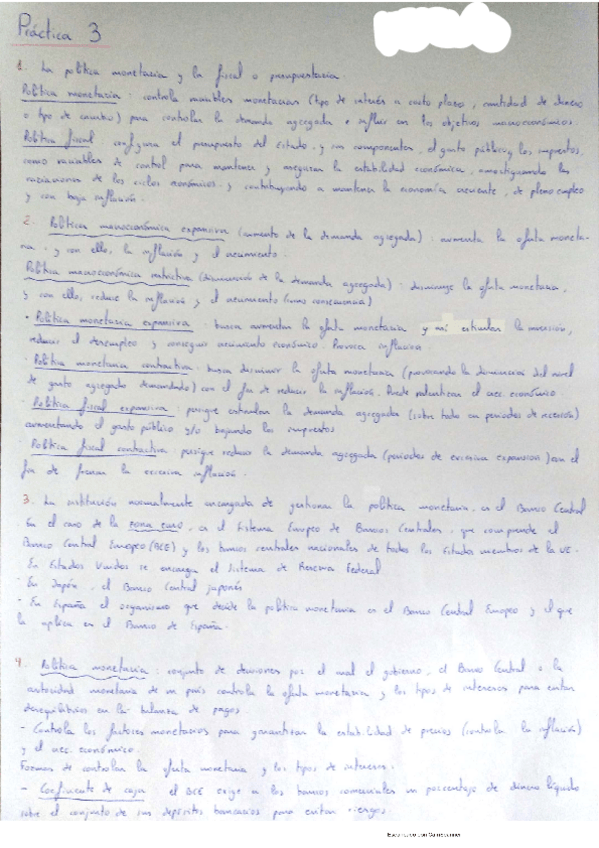 Práctica 3
1. La política monetaria y la fiscal o presupuestaria.
Política monetaria: controla variables monetarias (tipo de interés a corto plazo, cantidad de dinero
o tipo de cambio) para controlar la demanda agregada e influir en los objetivos macroeconómicos.
Política fiscal configura el presupuesto del Estado, y sus componentes, el gasto público y los impuestos,
como variables de control para mantener y asegurar la estabilidad económica, amortiguando las
variaciones de los ciclos económicos y contribuyendo a mantener la economía creciente, de pleno empleo
y con baja inflación.
2. Política macroeconómica expansiva (aumento de la demanda agregada): aumenta la oferta moneta-
ria, y con ello, la inflación y el crecimiento.
Política macroeconómica restrictiva (disminución de la demanda agregada): disminuye la oferta monetaria,
y con ello, reduce la inflación y el crecimiento (como consecuencia)
- Política monetaria expansiva: busca aumentar la oferta monetaria y así estimular la inversión,
reducir el desempleo y conseguir crecimiento económico. Provoca inflación.
- Política monetaria contractiva: busca disminuir la oferta monetaria (provocando la disminución del nivel
de gasto agregado demandado) con el fin de reducir la inflación. Puede ralentizar el crec. económico.
- Política fiscal expansiva: persigue estimular la demanda agregada (sobre todo en periodos de recesión)
aumentando el gasto público y/o bajando los impuestos
- Política fiscal contractiva persigue reducir la demanda agregada (periodos de excesiva expansión) con el
fin de frenar la excesiva inflación.
3. La institución normalmente encargada de gestionar la política monetaria, es el Banco Central
En el caso de la zona euro, es el Sistema Europeo de Bancos Centrales, que comprende el
Banco Central Europeo (BCE) y los bancos centrales nacionales de todos los Estados miembros de la UE.
- En Estados Unidos se encarga el Sistema de Reserva Federal
- En Japón, el Banco Central japonés
- En España el organismo que decide la política monetaria es el Banco Central Europeo y el que
la aplica es el Banco de España.
4. Política monetaria: conjunto de decisiones por el cual el gobierno, el Banco Central o la
autoridad monetaria de un país controla la oferta monetaria y los tipos de intereses para evitar
desequilibrios en la balanza de pagos.
- Controla los factores monetarios para garantizar la estabilidad de precios (controla la inflación)
y el crec. económico.
Formas de controlar la oferta monetaria y los tipos de intereses.
- Coeficiente de caja el BCE exige a los bancos comerciales un porcentaje de dinero líquido
sobre el conjunto de sus depósitos bancarios para evitar riesgos.
Escaneado con CamScanner